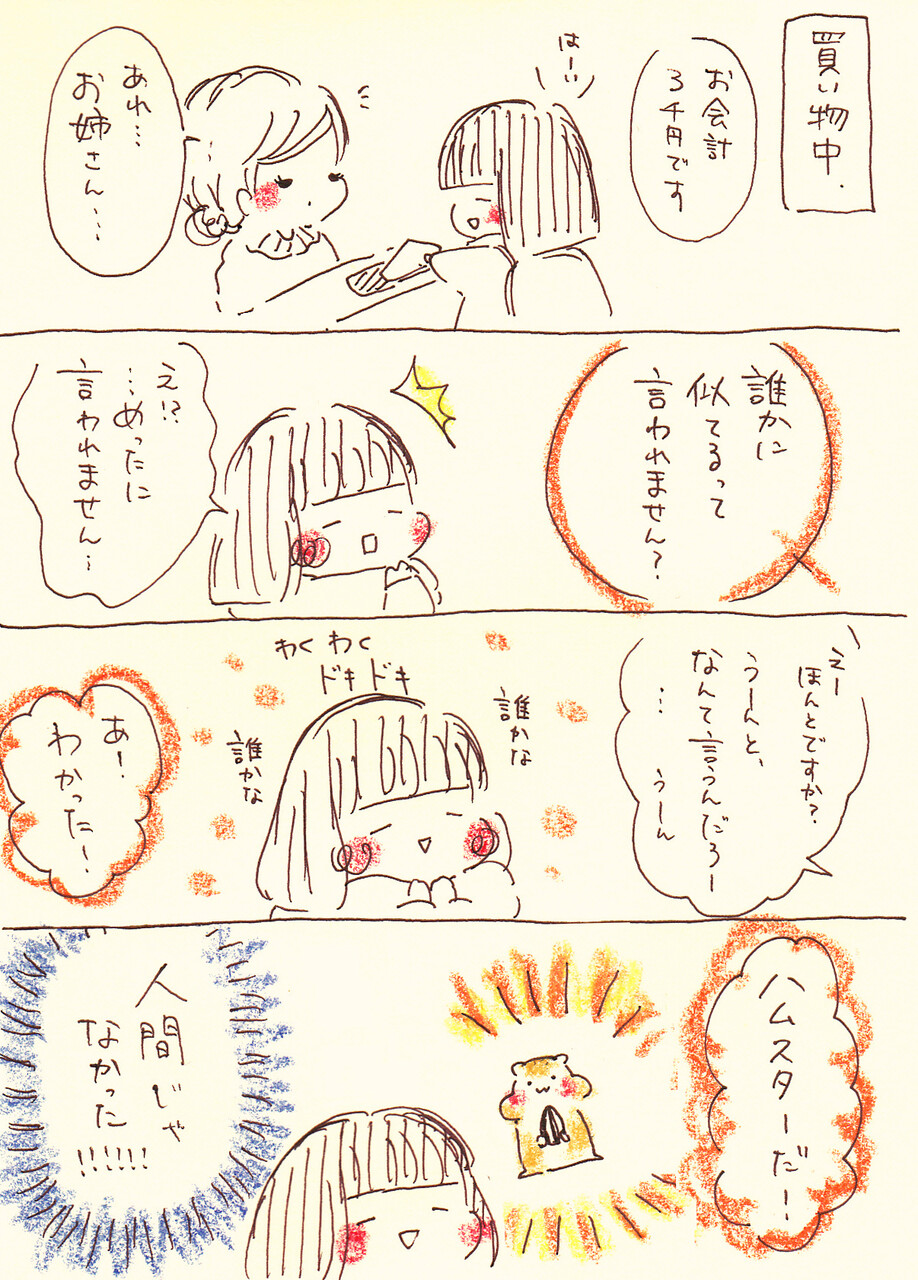 買い物中.
お会計
3千円です
はーい
あれ…
お姉さん…
誰かに
似てるって
言われません?
え!?
…めったに
言われません…
えー
ほんとですか?
うーんと、
なんて言うんだろー
… うーん
誰かな
わくわく
ドキドキ
誰かな
あー!
わかったー!
ハムスターだー!
人間じゃ
なかった!!!!!!